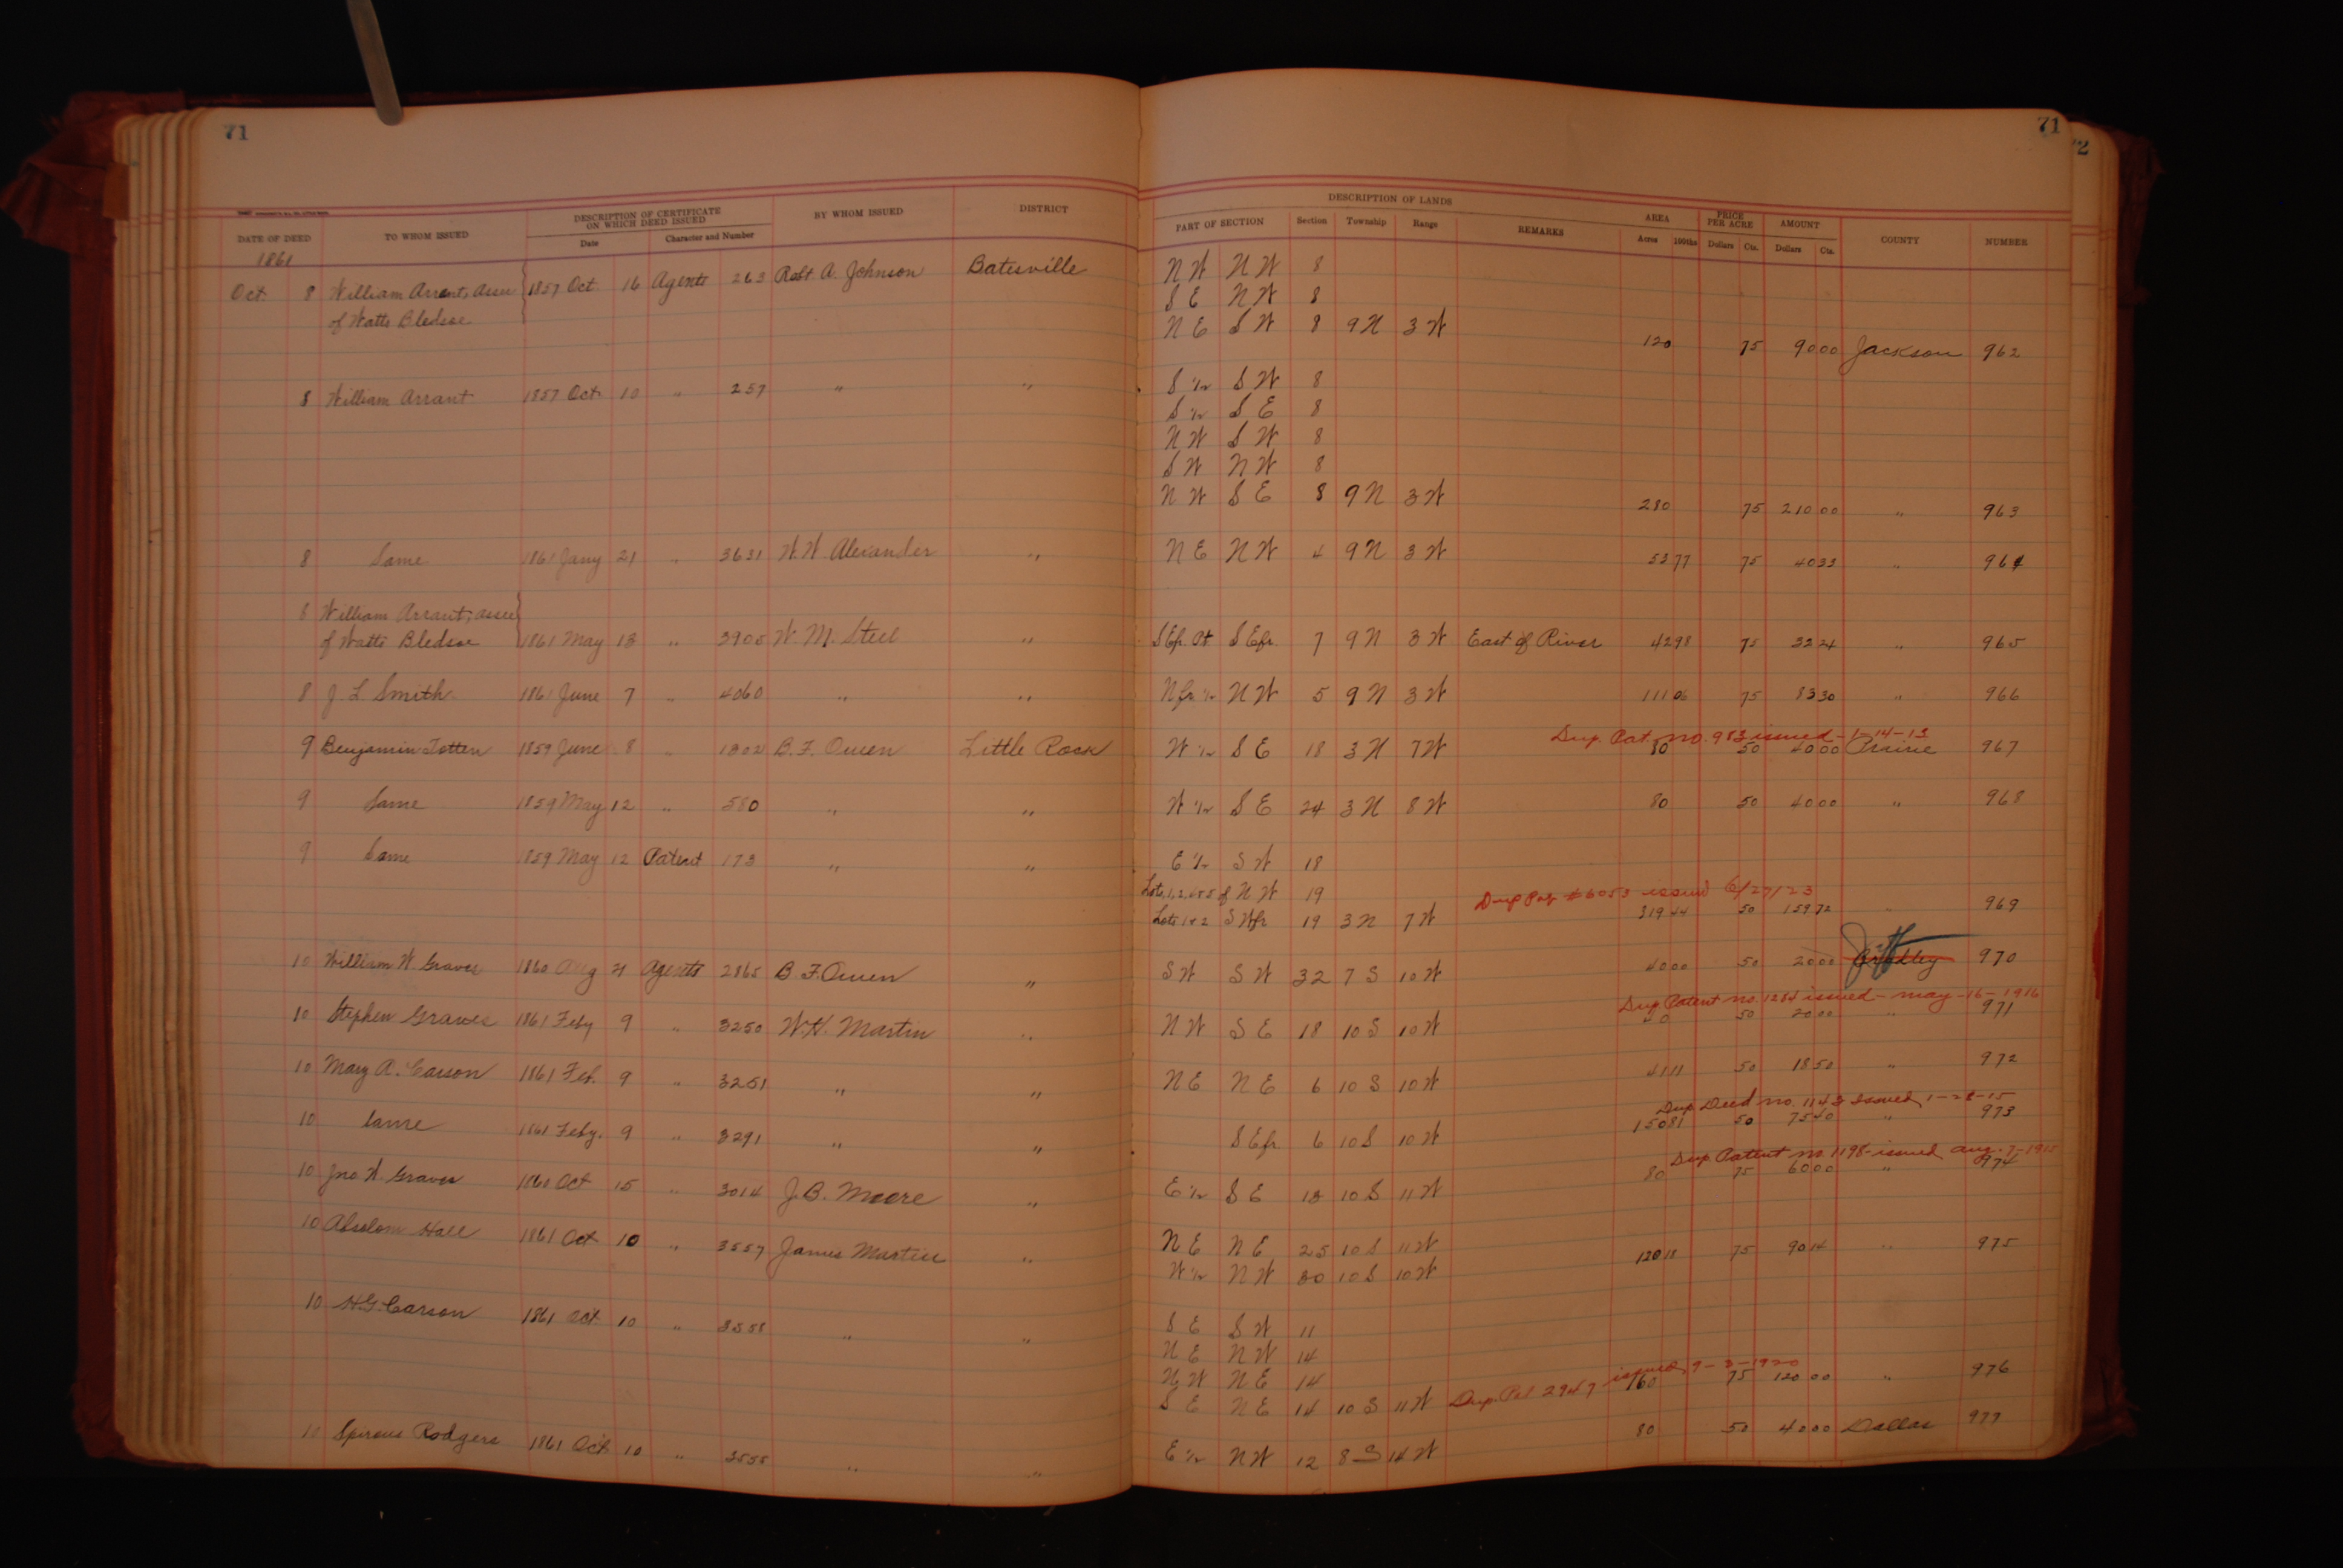 71 71
72
DESCRIPTION OF CERTIFICATE ON WHICH DEED ISSUED DESCRIPTION OF LANDS
DATE OF DEED TO WHOM ISSUED Date Character and Number BY WHOM ISSUED DISTRICT PART OF SECTION Section Township Range REMARKS AREA Acres 100ths PRICE PER ACRE Dollars Cts. AMOUNT Dollars Cts. COUNTY NUMBER
1861
Oct 8 William Arrant, assee 1857 Oct. 16 Agents 263 Robt A. Johnson Batesville N W N W 8
of Watts Bledsoe S E N W 8
N E S W 8 9 N 3 W 120 75 90 00 Jackson 962
8 William Arrant 1857 Oct 10 " 257 " " S ½ S W 8
S ½ S E 8
N W S W 8
S W N W 8
N W S E 8 9 N 3 W 280 75 210 00 " 963
8 Same 1861 Jany 21 " 3631 W. W. Alexander " N E N W 4 9 N 3 W 53 77 75 40 33 " 964
8 William Arrant, assee
of Watts Bledsoe 1861 May 13 " 3905 W. M. Steel " S E fr. Pt S E fr. 7 9 N 3 W East of River 42 98 75 32 24 " 965
8 J. L. Smith 1861 June 7 " 4060 " " N fr ½ N W 5 9 N 3 W 111 06 75 83 30 " 966
Dup. Pat. no. 983 issued - 1-14-13
9 Benjamin Totten 1859 June 8 " 1302 B. F. Owen Little Rock W ½ S E 18 3 N 7 W 80 50 40 00 Prairie 967
9 Same 1859 May 12 " 580 " " W ½ S E 24 3 N 8 W 80 50 40 00 " 968
9 Same 1859 May 12 Patent 173 " " E ½ S W 18
Lots 1, 2, & 5 of N W 19 Dup Pat #6053 issued 6/27/23
Lots 1 & 2 S W fr 19 3 N 7 W 319 44 50 159 72 " 969
10 William W. Graves 1860 Aug 21 Agents 2865 B. F. Owen " S W S W 32 7 S 10 W 40 00 50 20 00 Jeff 970
Dup Patent no. 1284 issued - may - 16 - 1916
10 Stephen Graves 1861 Feby 9 " 3250 W. H. Martin " N W S E 18 10 S 10 W 40 50 20 00 " 971
10 Mary A. Carson 1861 Feb. 9 " 3251 " " N E N E 6 10 S 10 W 41 11 50 18 50 " 972
Dup Deed no. 1143 Issued, 1-28-15
10 Same 1861 Feby. 9 " 3291 " " S E fr 6 10 S 10 W 150 81 50 75 40 " 973
Dup Patent no 1198 issued aug. 7-1915
10 Jno W. Graves 1860 Oct 15 " 3014 J. B. Moore " E ½ S E 13 10 S 11 W 80 75 60 00 " 974
10 Absolom Hall 1861 Oct 10 " 3557 James Martin " N E N E 25 10 S 11 W 120 18 75 90 14 " 975
W ½ N W 30 10 S 10 W
10 H. G. Carson 1861 Oct 10 " 3558 " " S E S W 11
N E N W 14
N W N E 14
S E N E 14 10 S 11 W Dup. Pat 2947 issued, 9-3-1920 160 75 120 00 " 976
10 Spirous Rodgers 1861 Oct 10 " 3555 " " E ½ N W 12 8 S 14 W 80 50 40 00 Dallas 977